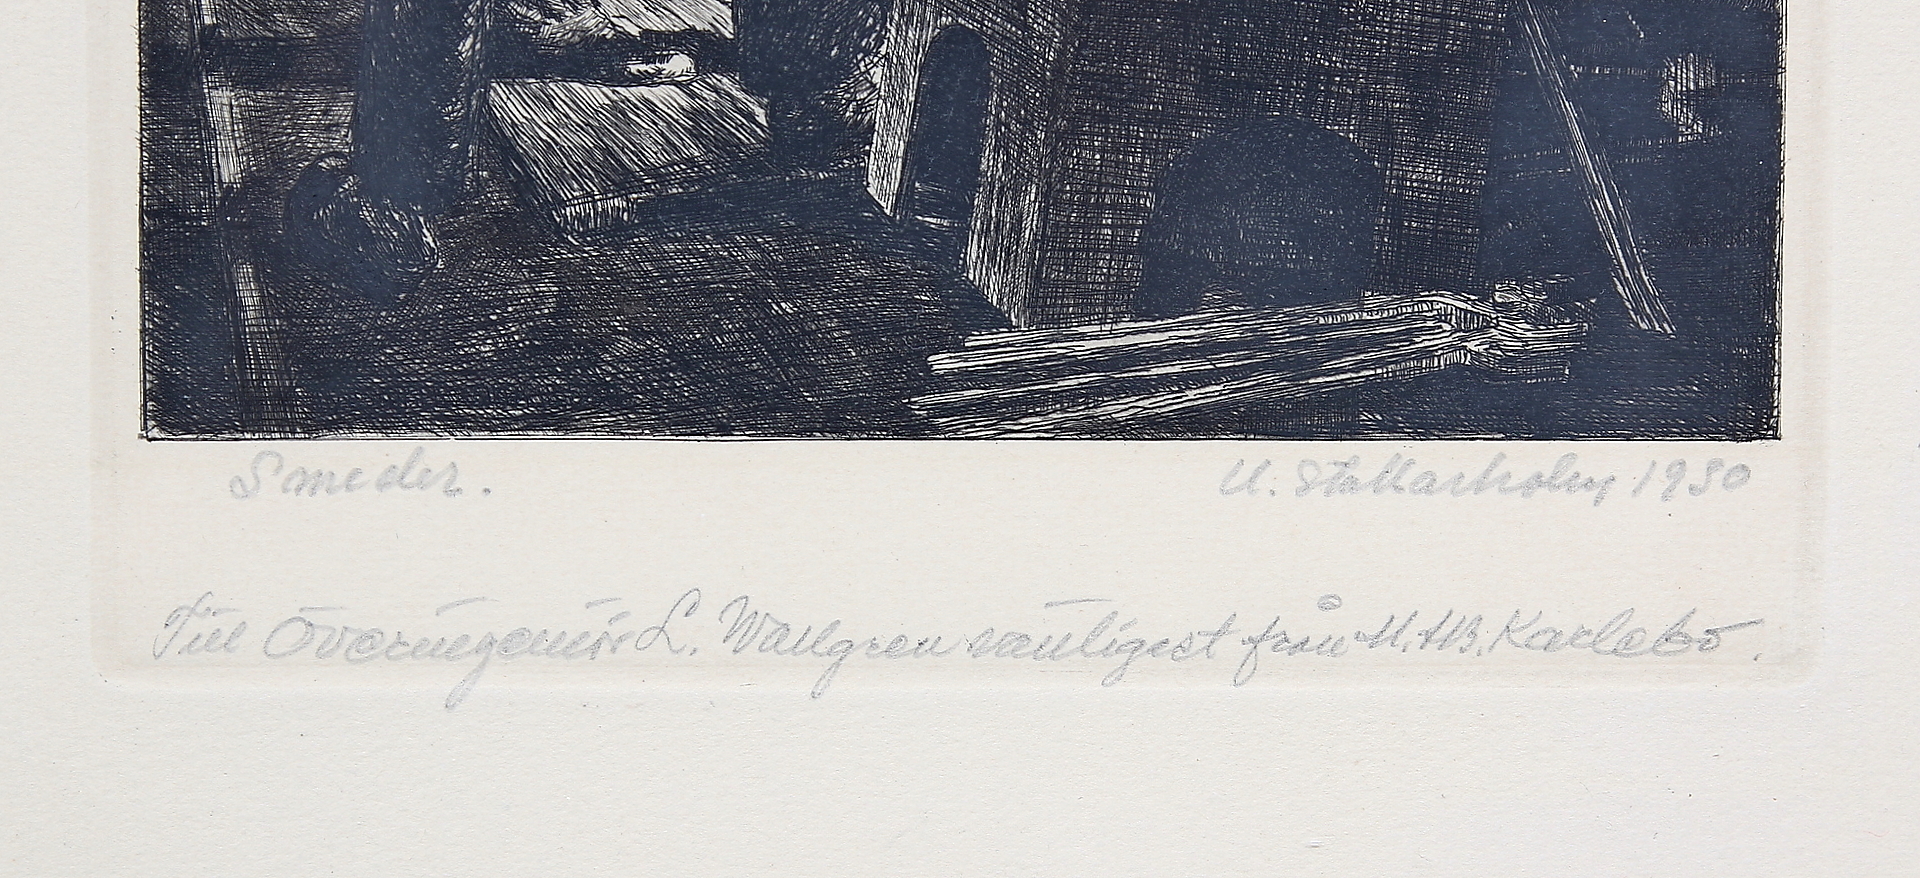 Smeder. U. Stallarholm 1930
Till Överingenör L. Wallgren vänligest från A.B. Karlebo.